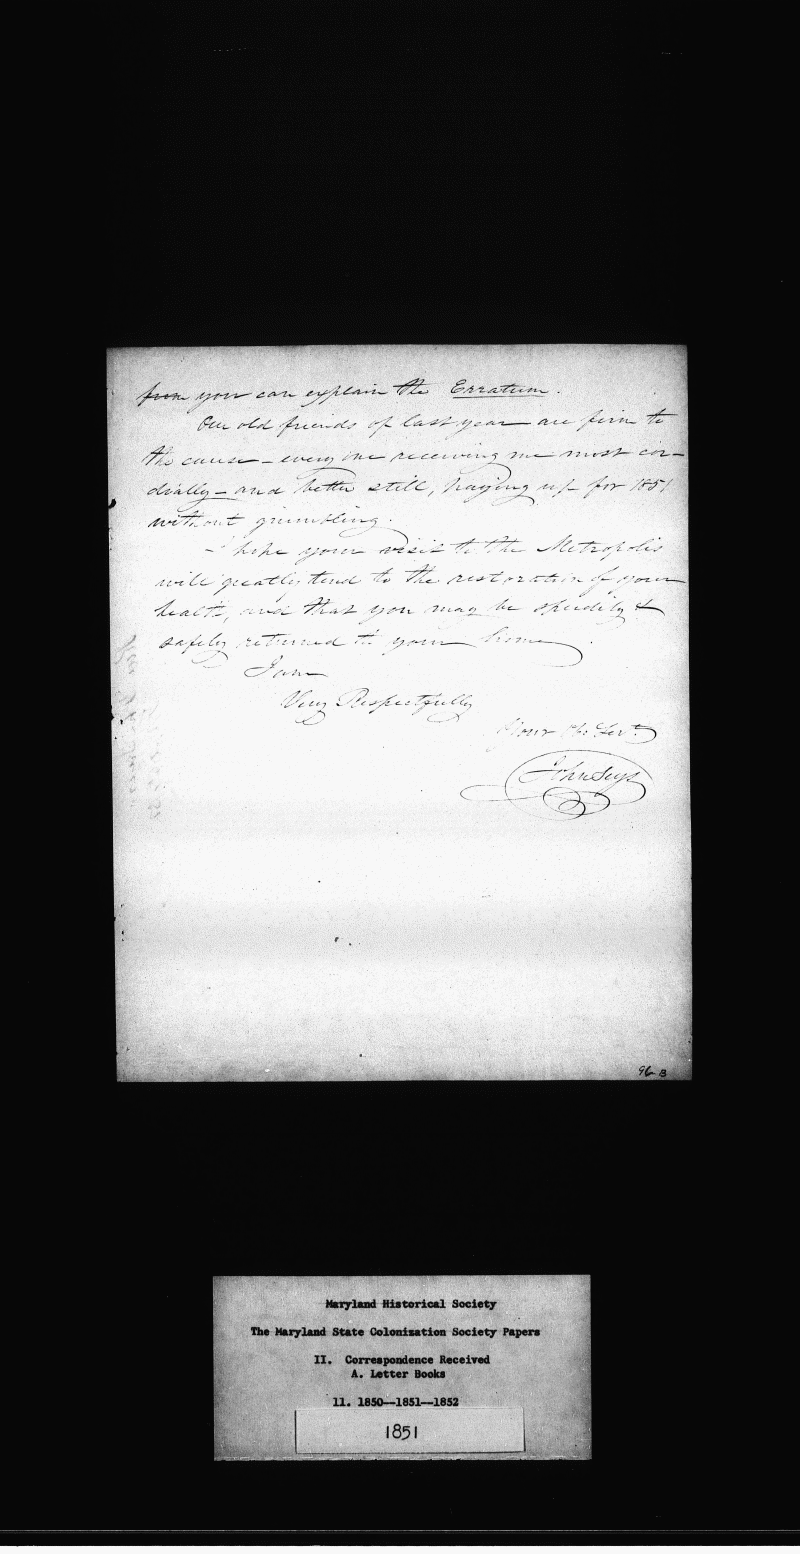 from you can explain the Erratum.
Our old friends of last year are firm to
the cause - every one receiving me most cor-
dially - and better still, paying up for 1851
without grumbling.
I hope your visit to the Metropolis
will greatly tend to the restoration of your
health, and that you may be speedily &
safely returned to your home
I am
Very Respectfully
Your Ob. Servt.
John Seys
96 B
Maryland Historical Society
The Maryland State Colonization Society Papers
II. Correspondence Received
A. Letter Books
11. 1850--1851--1852
1851